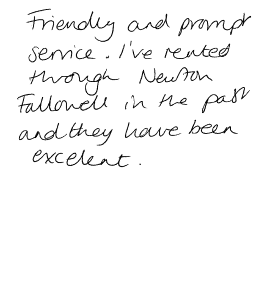 Friendly and prompt
service. I've rented
through Newton
Fallowell in the past
and they have been
excelent.